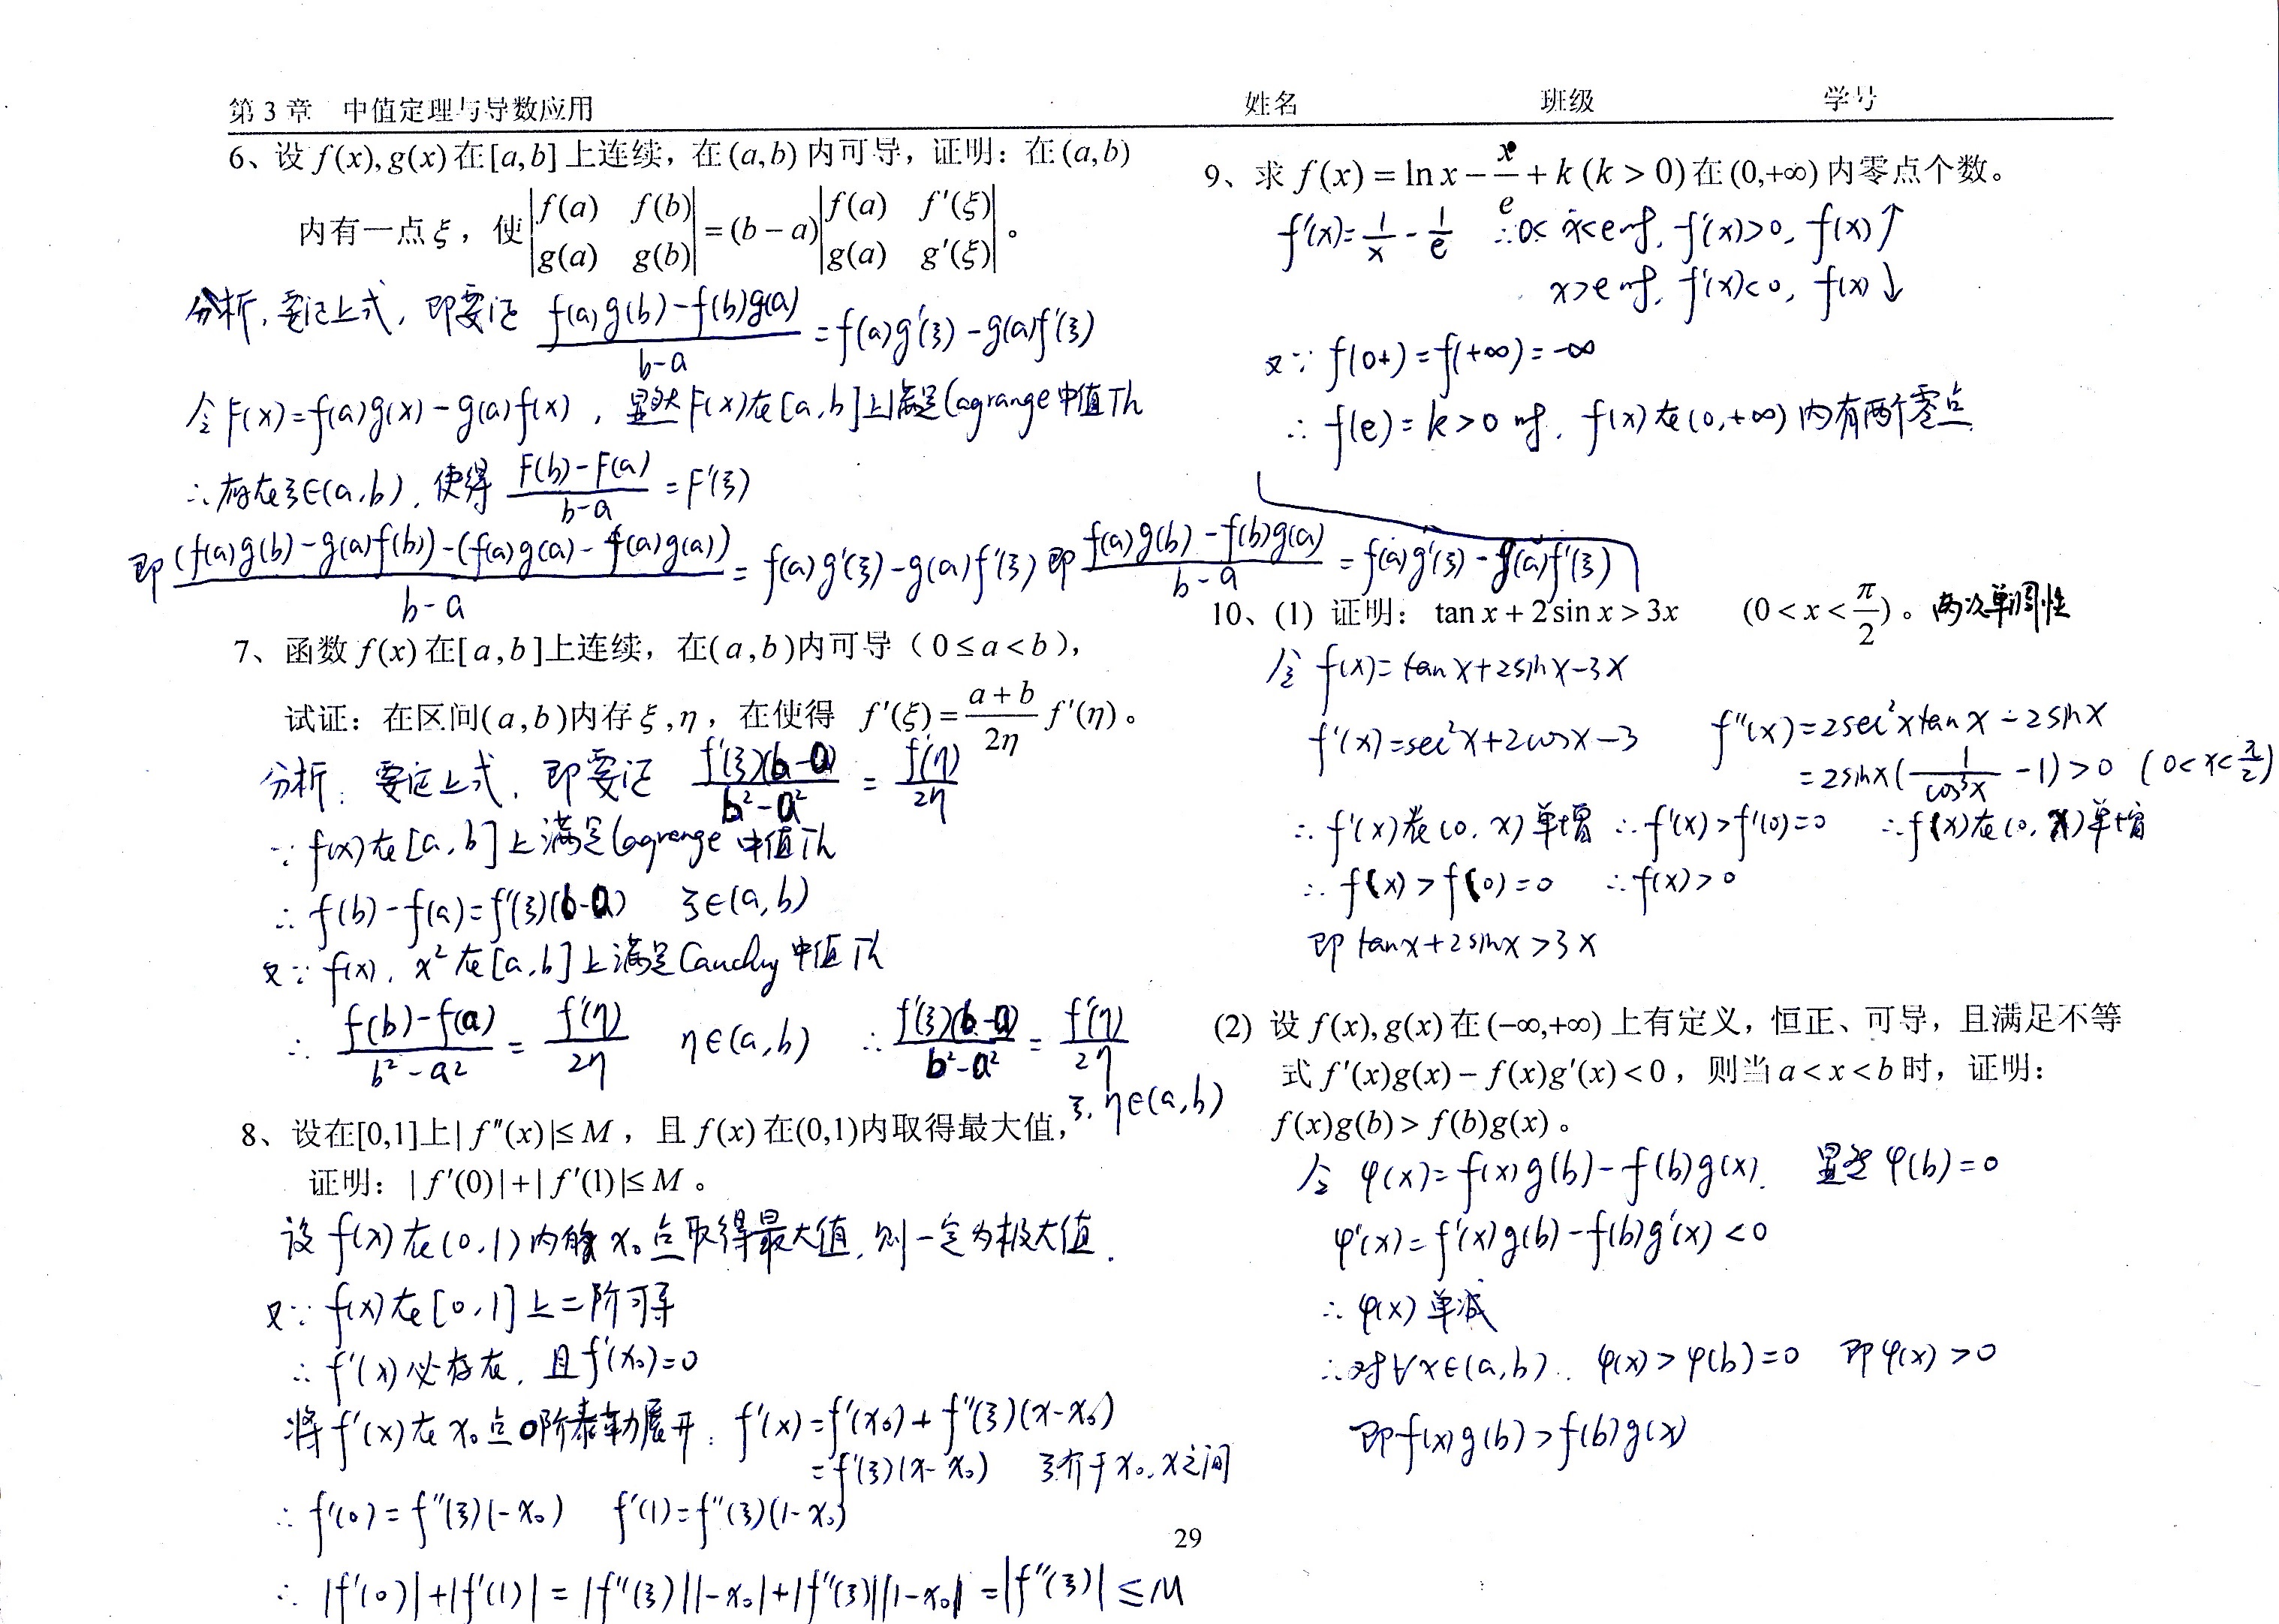 第 3 章 中值定理与导数应用 姓名 班级 学号
6、设 f(x), g(x) 在 [a,b] 上连续，在 (a,b) 内可导，证明：在 (a,b)
内有一点 ξ，使 |f(a) f(b); g(a) g(b)| = (b − a) |f(a) f′(ξ); g(a) g′(ξ)|。
分析，要证上式，即要证 (f(a)g(b)−f(b)g(a))/(b−a) = f(a)g′(ξ)−g(a)f′(ξ)
令 F(x)=f(a)g(x)−g(a)f(x)，显然 F(x)在[a,b]上满足Lagrange中值Th
∴ 存在ξ∈(a,b)，使得 (F(b)−F(a))/(b−a) = F′(ξ)
即 ((f(a)g(b)−g(a)f(b))−(f(a)g(a)−f(a)g(a)))/(b−a) = f(a)g′(ξ)−g(a)f′(ξ) 即 (f(a)g(b)−f(b)g(a))/(b−a) = f(a)g′(ξ)−g(a)f′(ξ)
7、函数 f(x) 在[a,b]上连续，在(a,b)内可导（0≤a<b），
试证：在区间(a,b)内存ξ,η，在使得 f′(ξ)=(a+b)/(2η) f′(η)。
分析：要证上式，即要证 f′(ξ)(b−a)/(b²−a²) = f′(η)/2η
∵ f(x)在[a,b]上满足Lagrange 中值Th
∴ f(b)−f(a)=f′(ξ)(b−a) ξ∈(a,b)
又∵ f(x)，x²在[a,b]上满足Cauchy 中值Th
∴ (f(b)−f(a))/(b²−a²) = f′(η)/2η η∈(a,b) ∴ f′(ξ)(b−a)/(b²−a²) = f′(η)/2η
ξ，η∈(a,b)
8、设在[0,1]上|f″(x)|≤M，且 f(x)在(0,1)内取得最大值，
证明：|f′(0)|+|f′(1)|≤M。
设 f(x)在(0,1)内的x₀点取得最大值，则一定为极大值．
又∵ f(x)在[0,1]上二阶可导
∴ f′(x)必存在，且f′(x₀)=0
将f′(x)在x₀点0阶泰勒展开：f′(x)=f′(x₀)+f″(ξ)(x−x₀)
=f″(ξ)(x−x₀) ξ介于x₀，x之间
∴ f′(0)=f″(ξ)(−x₀) f′(1)=f″(ξ)(1−x₀)
∴ |f′(0)|+|f′(1)|=|f″(ξ)||−x₀|+|f″(ξ)||1−x₀|=|f″(ξ)|≤M
9、求 f(x)=ln x − x/e + k (k>0)在(0,+∞)内零点个数。
f′(x)=1/x − 1/e ∴0<x<e时，f′(x)>0，f(x)↑
x>e时，f′(x)<0，f(x)↓
又∵ f(0+)=f(+∞)=−∞
∴ f(e)=k>0时，f(x)在(0,+∞)内有两个零点
10、(1) 证明：tan x+2sin x>3x (0<x<π/2)。两次单调性
令 f(x)=tanx+2sinx−3x
f′(x)=sec²x+2cosx−3 f″(x)=2sec²xtanx−2sinx
=2sinx(1/cos³x −1)>0 (0<x<π/2)
∴ f′(x)在(0，x)单增 ∴f′(x)>f′(0)=0 ∴f(x)在(0，x)单增
∴ f(x)>f(0)=0 ∴f(x)>0
即 tanx+2sinx>3x
(2) 设 f(x),g(x)在(−∞,+∞)上有定义，恒正、可导，且满足不等
式 f′(x)g(x)−f(x)g′(x)<0，则当a<x<b时，证明：
f(x)g(b)>f(b)g(x)。
令 φ(x)=f(x)g(b)−f(b)g(x)． 显然 φ(b)=0
φ′(x)=f′(x)g(b)−f(b)g′(x)<0
∴ φ(x)单减
∴对∀x∈(a,b)．φ(x)>φ(b)=0 即φ(x)>0
即f(x)g(b)>f(b)g(x)
29